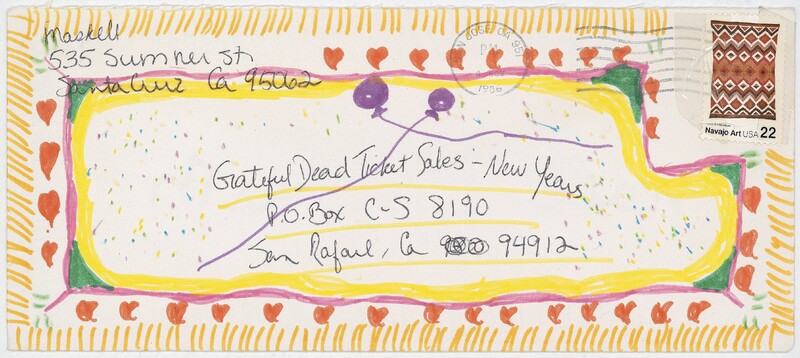 Maskell
535 Sumner St
Santa Cruz Ca 95062
SAN JOSE, CA 95
PM
1986
Navajo Art USA 22
Grateful Dead Ticket Sales - New Years
P.O. Box C-S 8190
San Rafael, Ca 94912